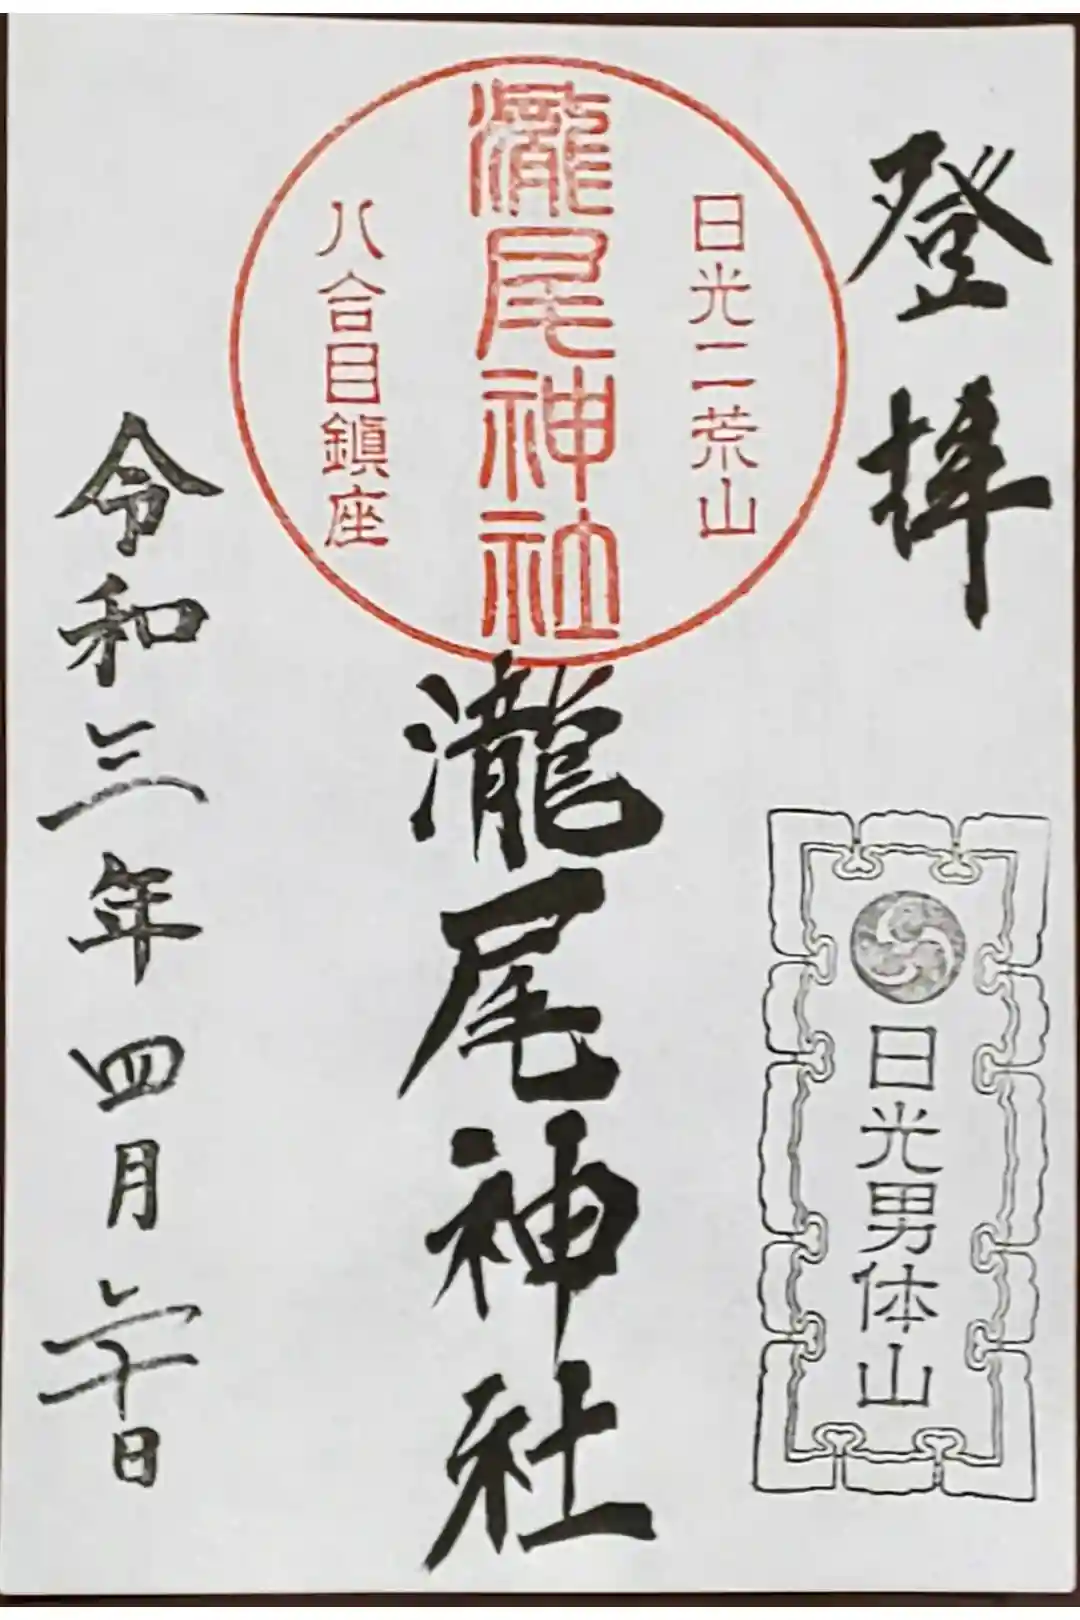 登拝
日光二荒山
瀧尾神社
八合目鎭座
日光男体山
瀧尾神社
令和三年四月二十日